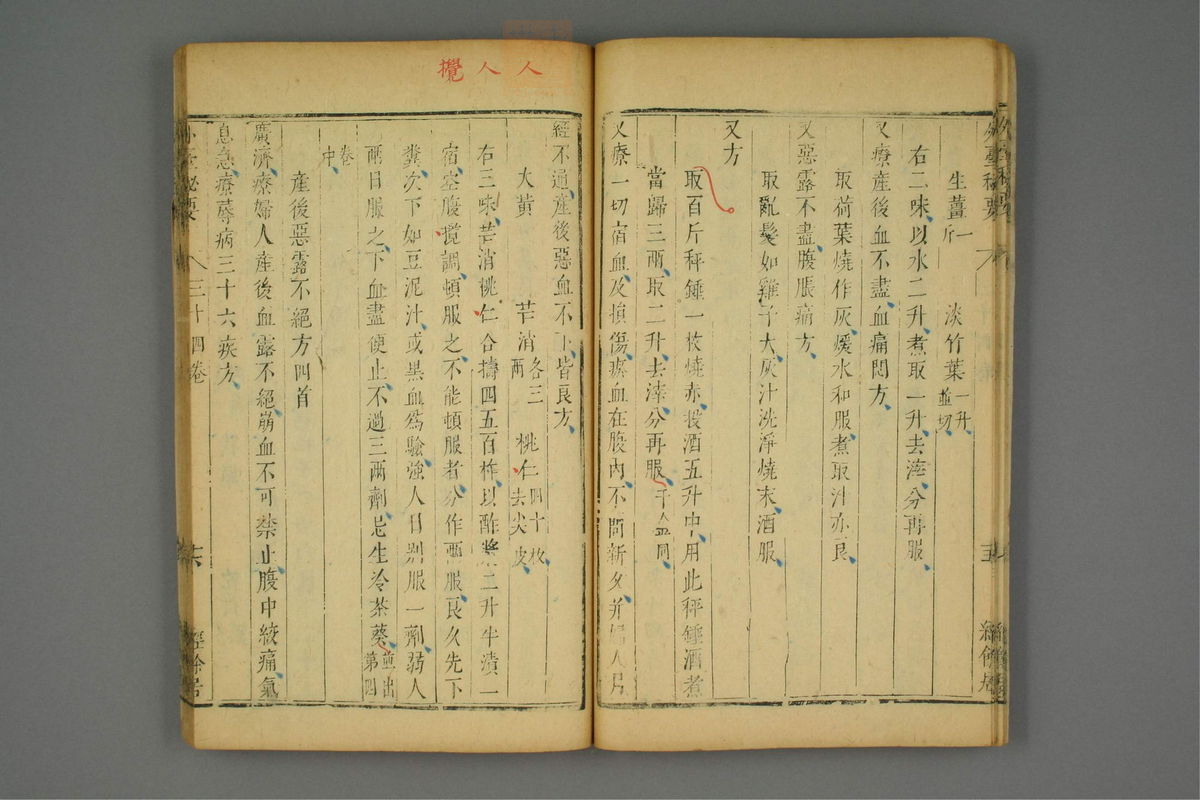 生薑一斤　淡竹葉一升並切
右二味以水二升煮取一升去滓分再服
又療產後血不盡血痛悶方
取荷葉燒作灰煖水和服煮取汁亦良
又惡露不盡腹脹痛方
取亂髮如雞子大灰汁洗淨燒末酒服
又方
取百斤秤錘一枚燒赤投酒五升中用此秤錘酒煮
當歸三兩取二升去滓分再服千金同
又療一切宿血及損傷瘀血在腹內不問新久并婦人月
人人攪
經不通產後惡血不下皆良方
大黃　芒消各三兩　桃仁四十枚去尖皮
右三味芒消桃仁合擣四五百杵以酢漿二升半漬一
宿空腹攪調頓服之不能頓服者分作兩服良久先下
糞次下如豆泥汁或黑血為驗強人日別服一劑弱人
兩日服之下血盡便止不過三兩劑忌生冷茶葵並出第四
卷中
產後惡露不絕方四首
廣濟療婦人產後血露不絕崩血不可禁止腹中絞痛氣
息急療蓐病三十六疾方
三十四卷　經餘居